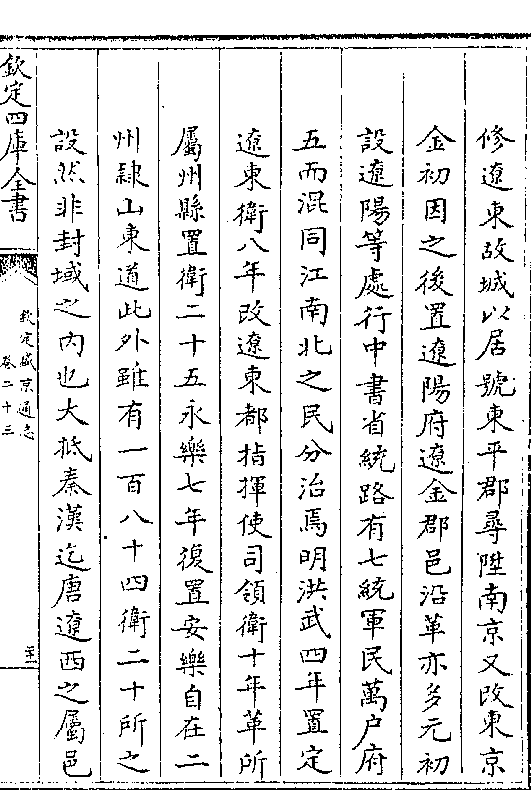 修遼東故城以居號東平郡尋陞南京又改東京
金初因之後置遼陽府遼金郡邑沿革亦多元初
設遼陽等處行中書省統路有七統軍民萬户府
五而混同江南北之民分治焉明洪武四年置定
遼東衛八年改遼東都指揮使司領衛十年革所
屬州縣置衛二十五永樂七年復置安樂自在二
州隸山東道此外雖有一百八十四衛二十所之
設然非封域之內也大抵秦漢迄唐遼西之屬邑
欽定四庫全書
欽定盛京通志
卷二十三